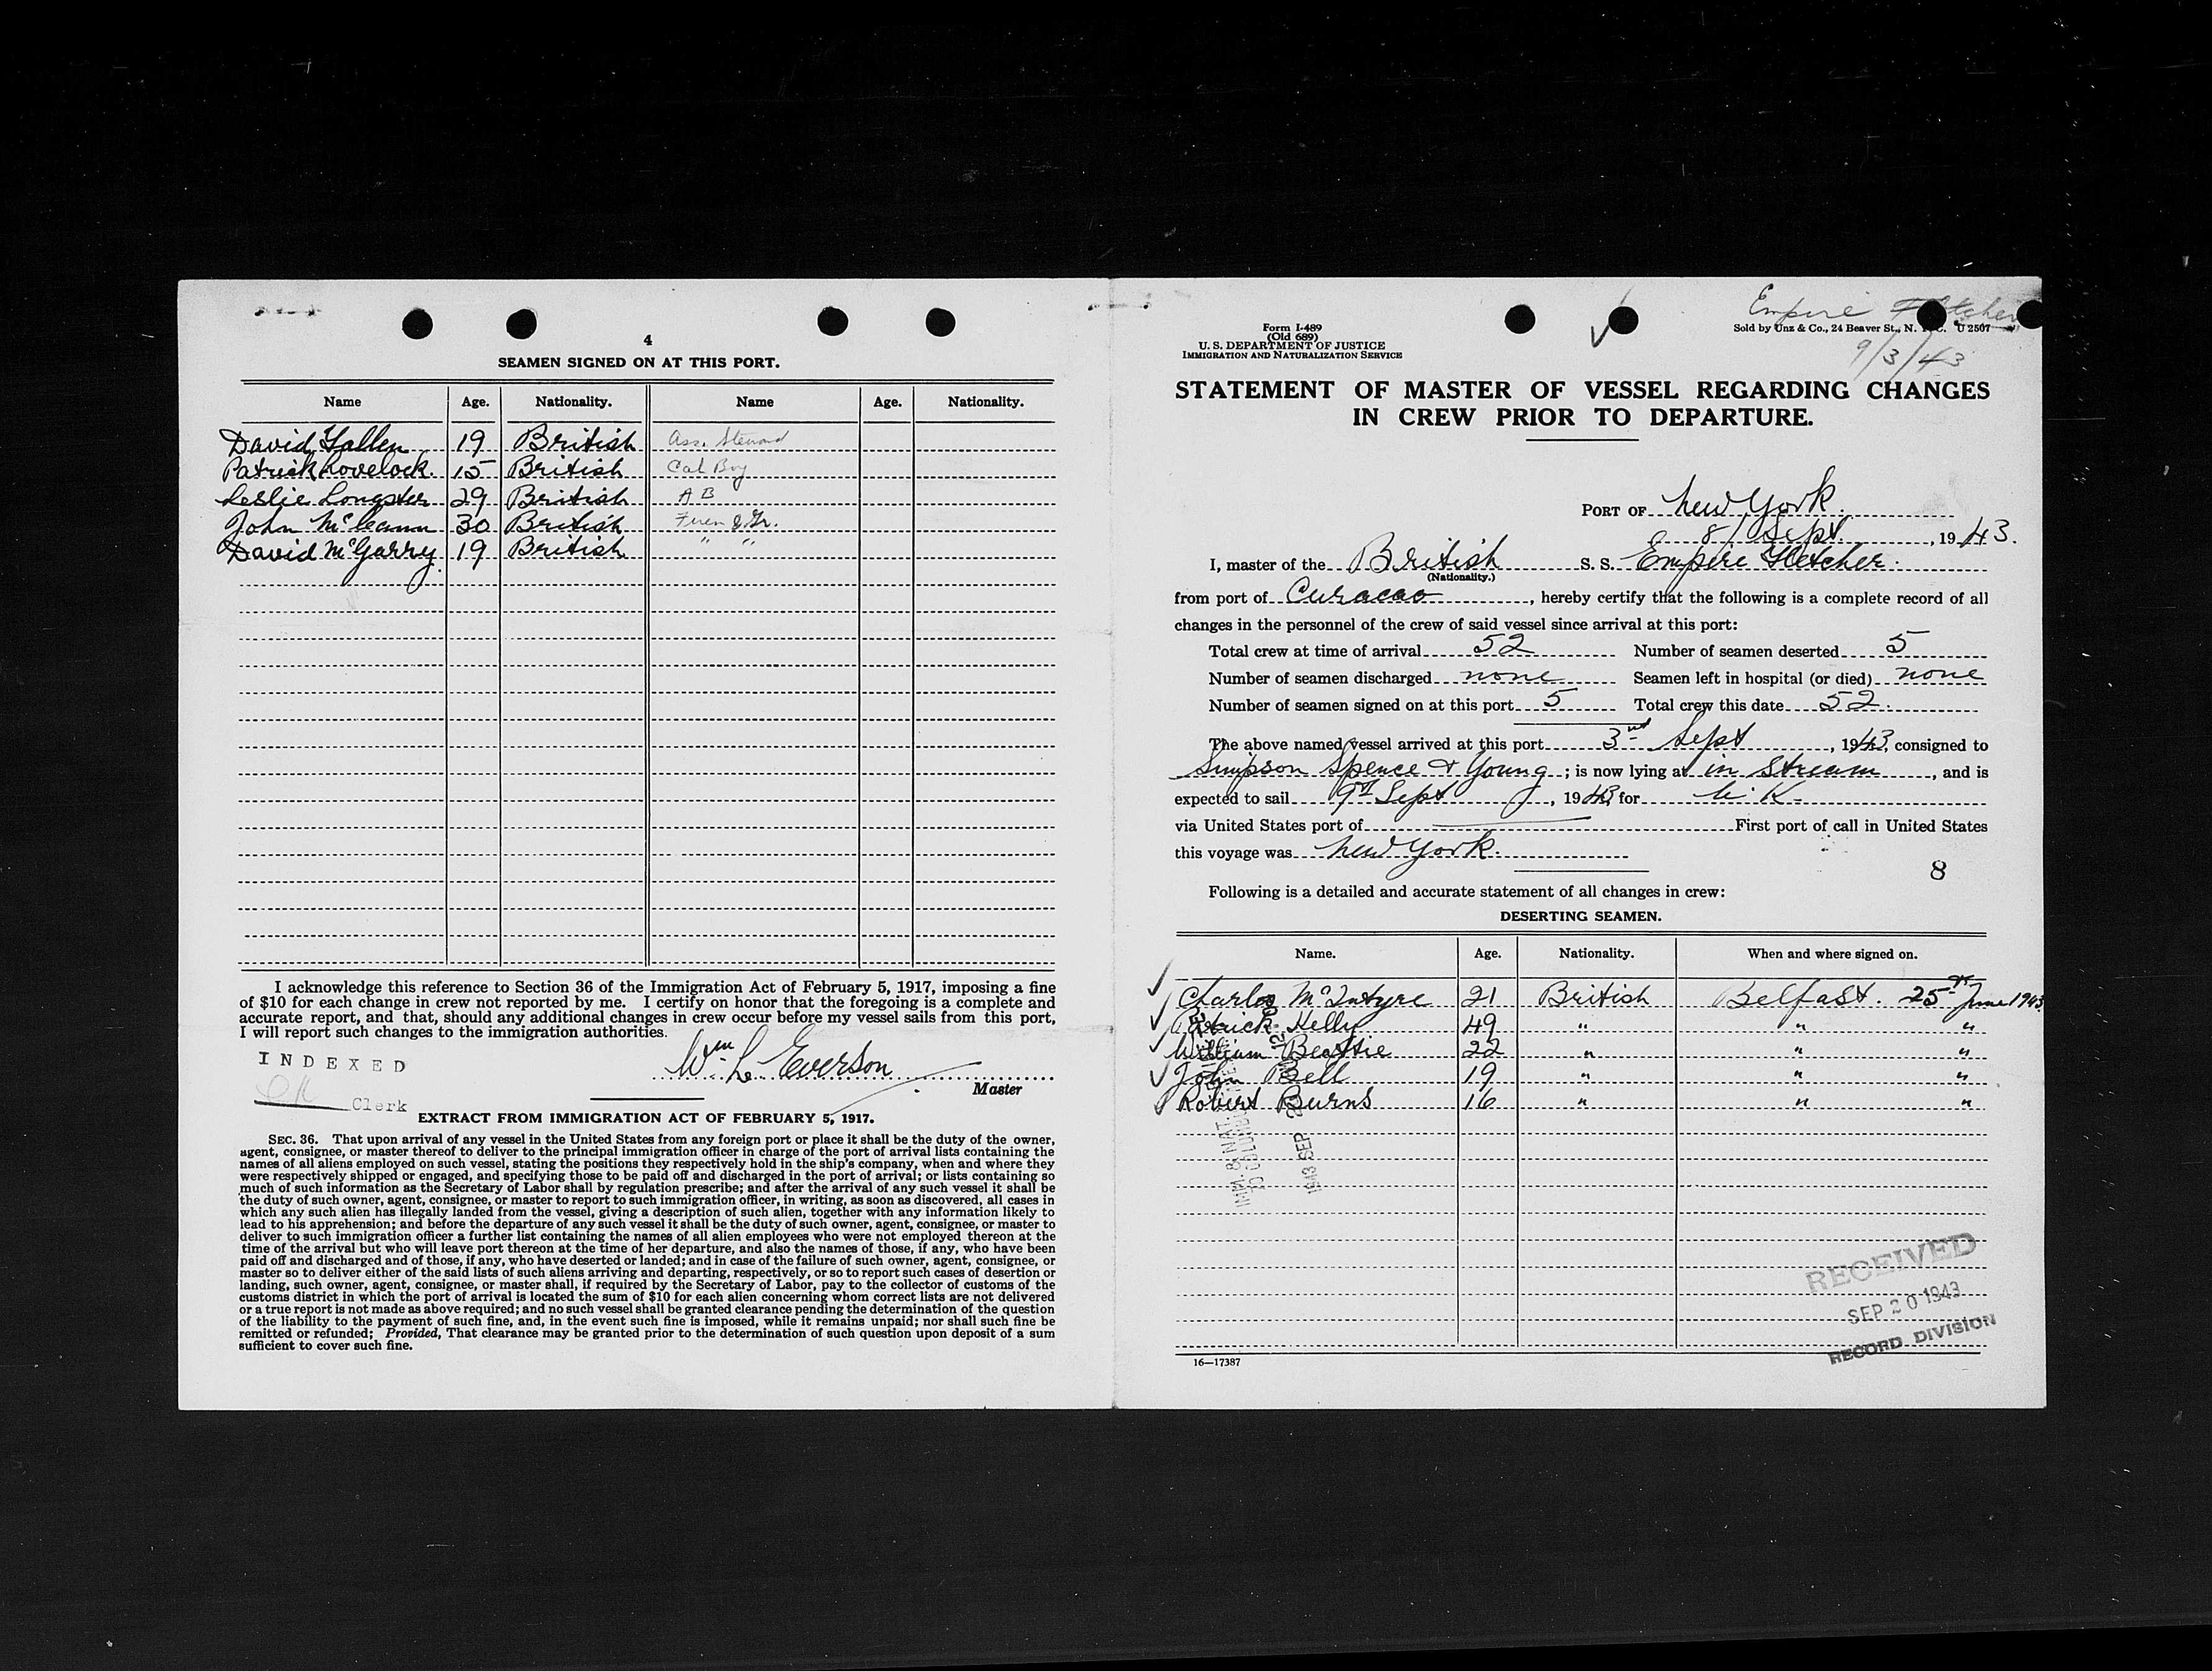 4
SEAMEN SIGNED ON AT THIS PORT.
Name Age. Nationality. Name Age. Nationality.
David 19 British Ass. Steward
Patrick Lovelock. 15 British Cab Boy
Leslie Longster 29 British A B
John McCann 30 British
David McGarry 19 British " "
I acknowledge this reference to Section 36 of the Immigration Act of February 5, 1917, imposing a fine
of $10 for each change in crew not reported by me. I certify on honor that the foregoing is a complete and
accurate report, and that, should any additional changes in crew occur before my vessel sails from this port,
I will report such changes to the immigration authorities.
INDEXED
Wm. L. Everson
Master
Clerk
EXTRACT FROM IMMIGRATION ACT OF FEBRUARY 5, 1917.
SEC. 36. That upon arrival of any vessel in the United States from any foreign port or place it shall be the duty of the owner,
agent, consignee, or master thereof to deliver to the principal immigration officer in charge of the port of arrival lists containing the
names of all aliens employed on such vessel, stating the positions they respectively hold in the ship's company, when and where they
were respectively shipped or engaged, and specifying those to be paid off and discharged in the port of arrival; or lists containing so
much of such information as the Secretary of Labor shall by regulation prescribe; and after the arrival of any such vessel it shall be
the duty of such owner, agent, consignee, or master to report to such immigration officer, in writing, as soon as discovered, all cases in
which any such alien has illegally landed from the vessel, giving a description of such alien, together with any information likely to
lead to his apprehension; and before the departure of any such vessel it shall be the duty of such owner, agent, consignee, or master to
deliver to such immigration officer a further list containing the names of all alien employees who were not employed thereon at the
time of the arrival but who will leave port thereon at the time of her departure, and also the names of those, if any, who have been
paid off and discharged and of those, if any, who have deserted or landed; and in case of the failure of such owner, agent, consignee, or
master so to deliver either of the said lists of such aliens arriving and departing, respectively, or so to report such cases of desertion or
landing, such owner, agent, consignee, or master shall, if required by the Secretary of Labor, pay to the collector of customs of the
customs district in which the port of arrival is located the sum of $10 for each alien concerning whom correct lists are not delivered
or a true report is not made as above required; and no such vessel shall be granted clearance pending the determination of the question
of the liability to the payment of such fine, and, in the event such fine is imposed, while it remains unpaid; nor shall such fine be
remitted or refunded; Provided, That clearance may be granted prior to the determination of such question upon deposit of a sum
sufficient to cover such fine.
Empire Fletcher
Form I-489
(Old 689)
U. S. DEPARTMENT OF JUSTICE
IMMIGRATION AND NATURALIZATION SERVICE
Sold by Unz & Co., 24 Beaver St., N. Y. C. U 2507
9/3/43
STATEMENT OF MASTER OF VESSEL REGARDING CHANGES
IN CREW PRIOR TO DEPARTURE.
PORT OF New York
8/ Sept., 1943.
I, master of the British S. S. Empire Fletcher.
(Nationality.)
from port of Curacao, hereby certify that the following is a complete record of all
changes in the personnel of the crew of said vessel since arrival at this port:
Total crew at time of arrival 52 Number of seamen deserted 5
Number of seamen discharged none Seamen left in hospital (or died) none
Number of seamen signed on at this port 5 Total crew this date 52.
The above named vessel arrived at this port 3rd Sept, 1943, consigned to
Simpson Spence & Young; is now lying at in Stream, and is
expected to sail 9th Sept, 1943, for U.K.
via United States port of First port of call in United States
this voyage was New York.
8
Following is a detailed and accurate statement of all changes in crew:
DESERTING SEAMEN.
Name. Age. Nationality. When and where signed on.
Charles McIntyre 21 British Belfast. 25th June 1943
Patrick Kelly 49 " " "
William Beattie 22 " " "
John Bell 19 " " "
Robert Burns 16 " " "
1943 SEP
RECEIVED
SEP 20 1943
RECORD DIVISION
16—17387